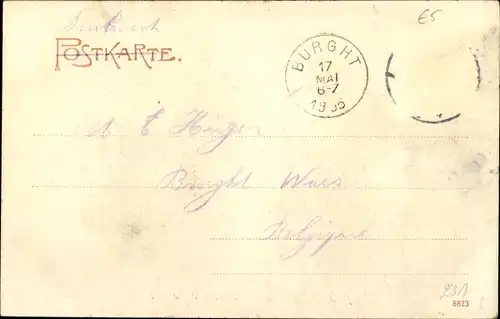 €5
POSTKARTE.
BURGHT
17
MAI
6-7
1905
Burght Waes
Belgique
231
8823